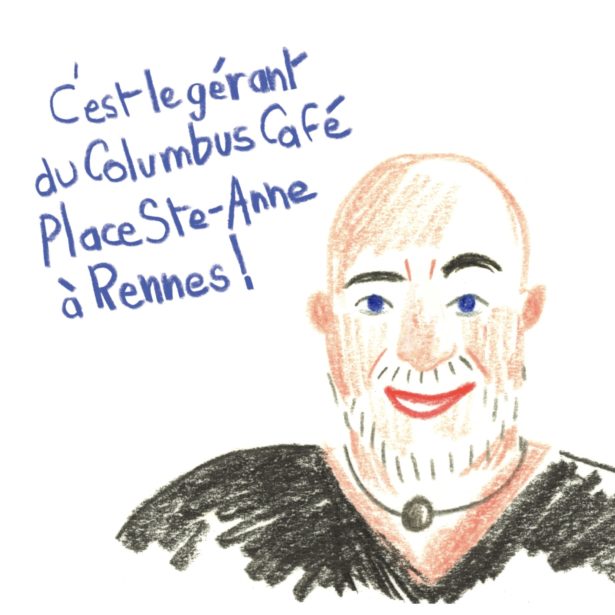 C'est le gérant
du Columbus Café
Place Ste-Anne
à Rennes !